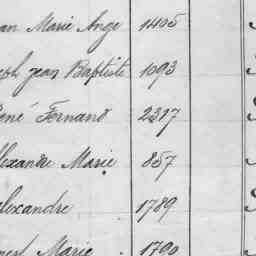 Marie Ange 1405
Jean Baptiste 1093
René Fernand 2317
Alexandre Marie 857
Alexandre 1789
Marie 1790